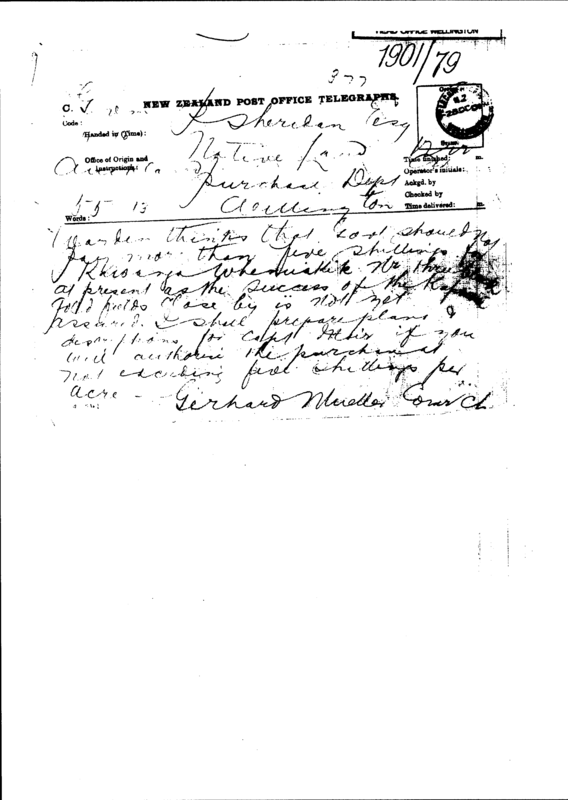 HEAD OFFICE WELLINGTON
1901/79
377
NEW ZEALAND POST OFFICE TELEGRAPHS.
Code:
Handed in (Time):
P Sheridan Esq
Office of Origin and
Instructions:
Native Land
Purchase Dept
Wellington
Time finished: m.
Operator's initials:
Ackgd. by
Checked by
Time delivered: m.
Words:
55 13
Warden thinks that Govt should not
pay more than five shillings for
at present as the success of the
Gold fields close by is not yet
assured. I shall prepare plans &
descriptions for Capt Mair if you
will authorise the purchase at
not exceeding five shillings per
acre —
Gerhard Mueller